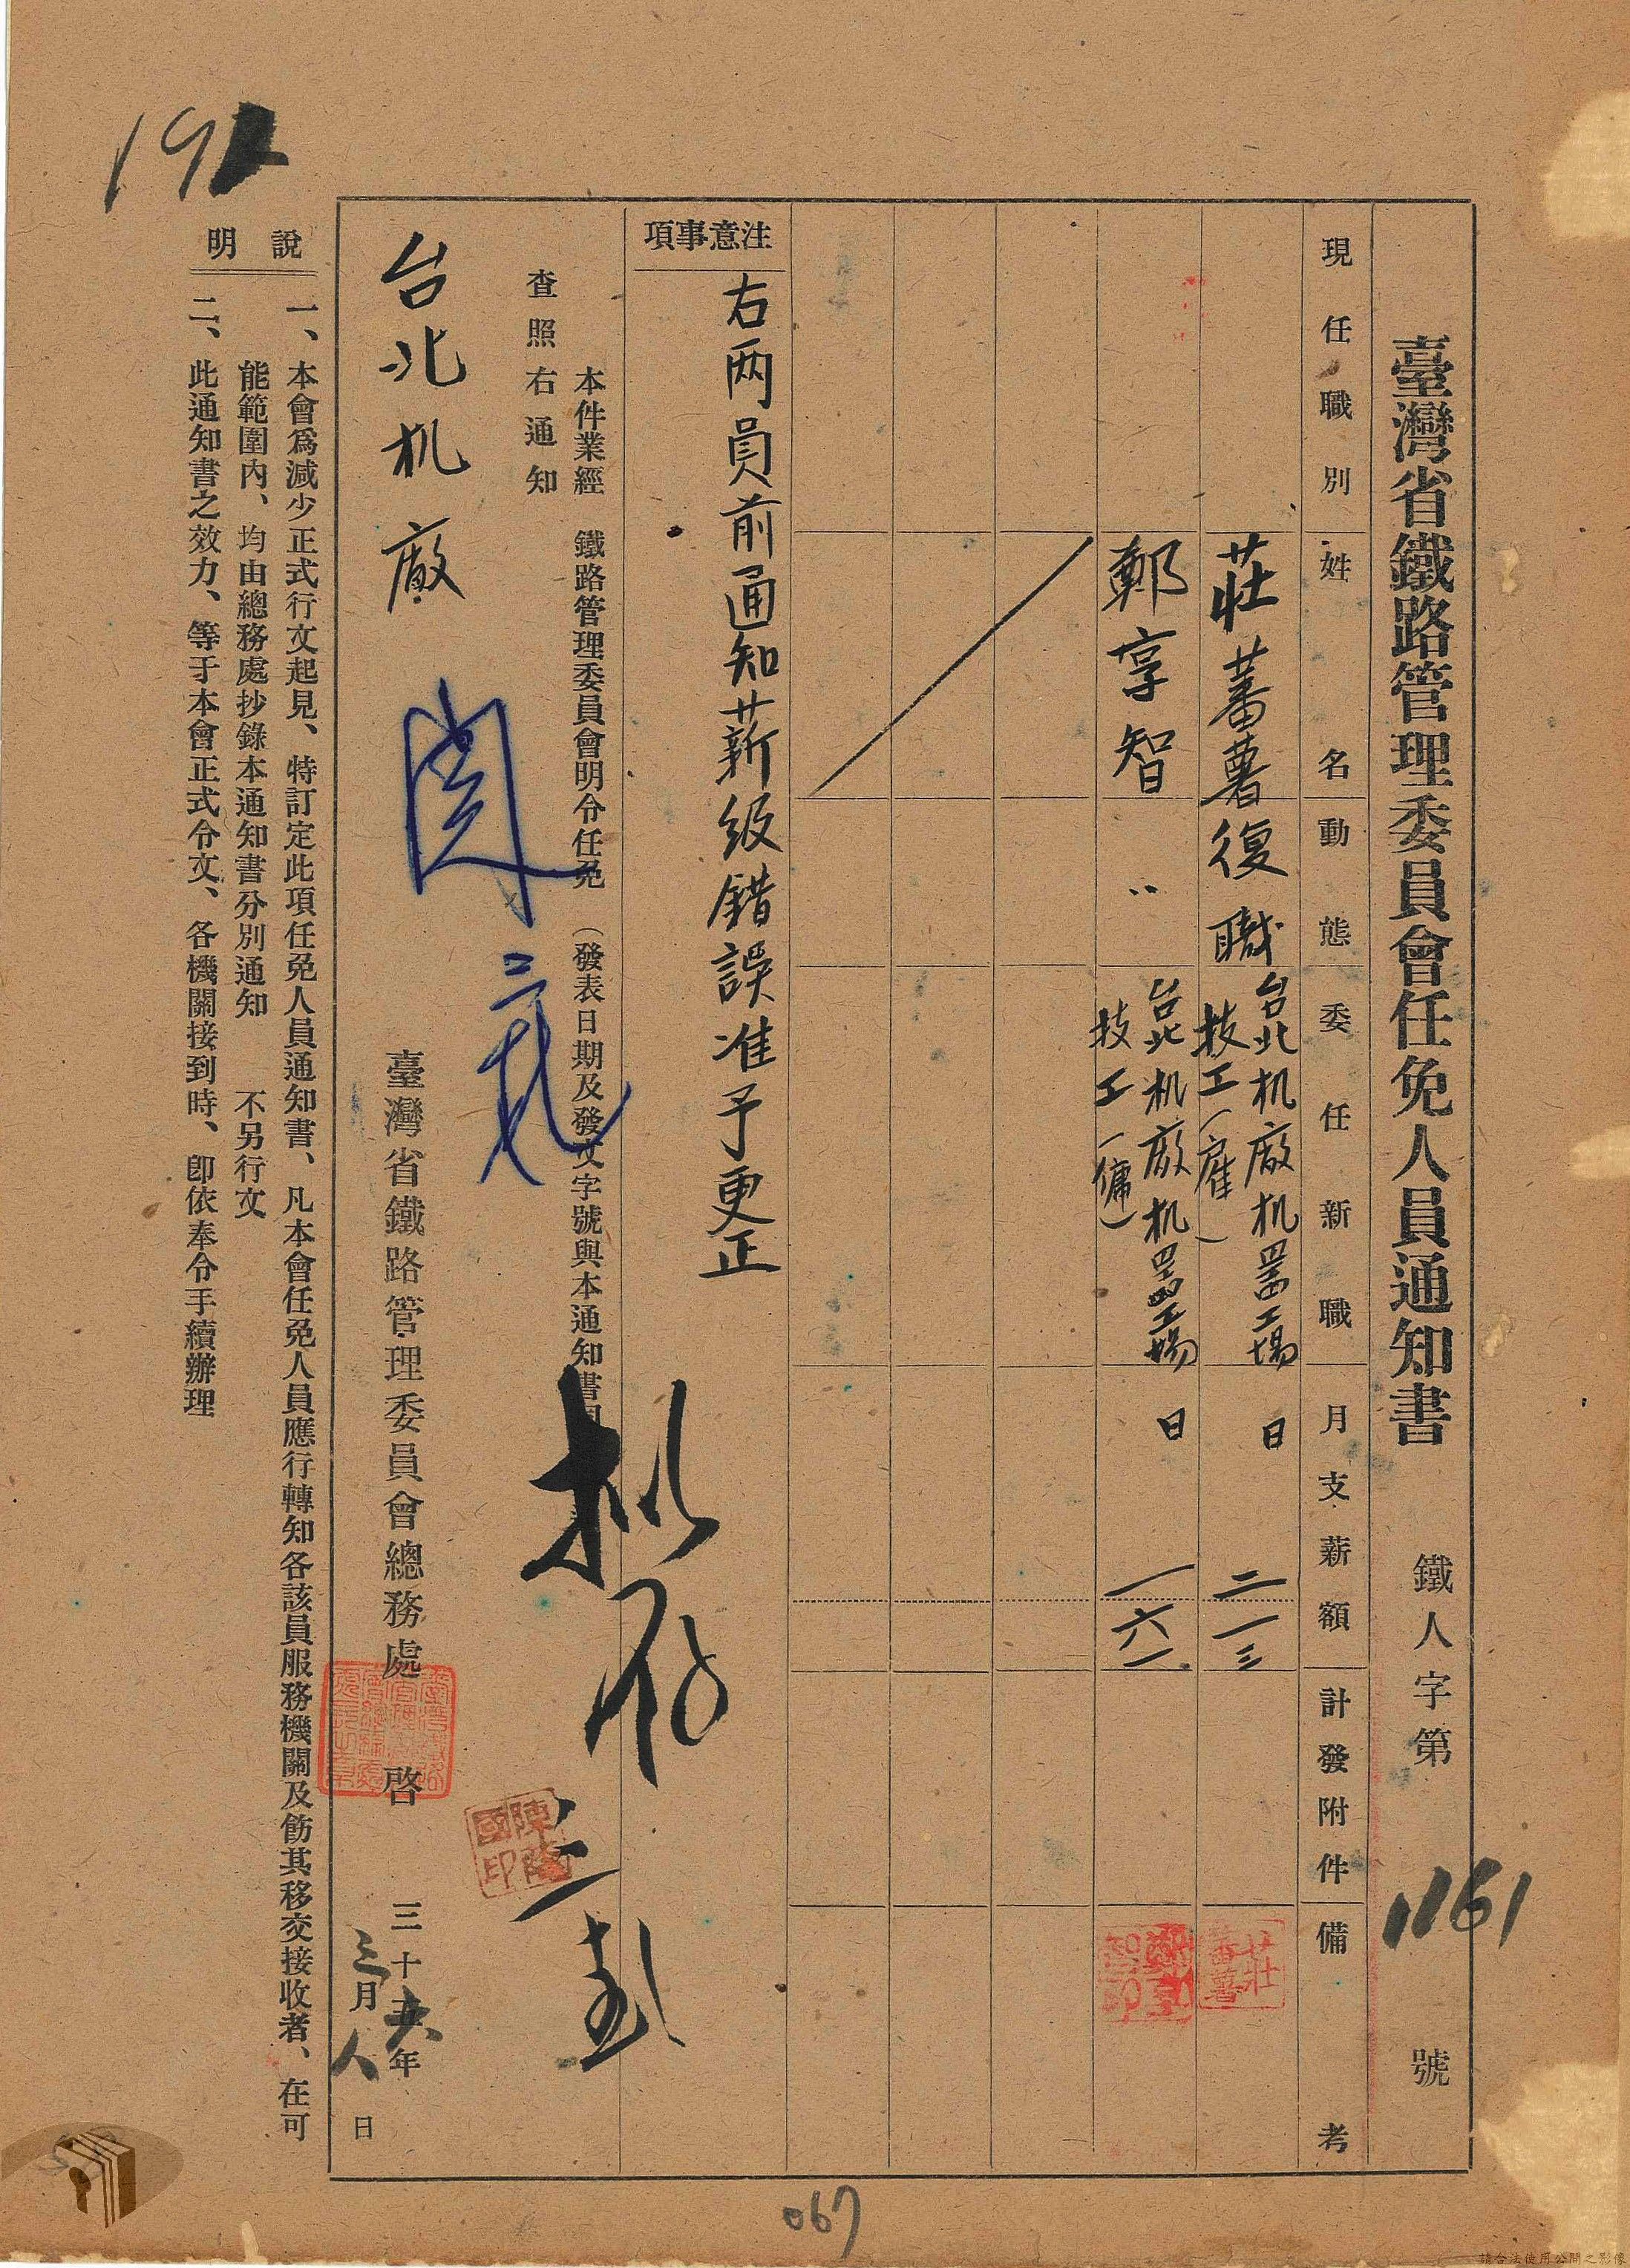 臺灣省鐵路管理委員會任免人員通知書
鐵人字第1161號
現任職別
姓名
動態
委任新職
月支薪額
計發附件
備考
莊蕃薯
復職
台北机廠机器工場
技工(雇)
日
二一三
莊蕃薯
鄭享智
〃
台北机廠机器工場
技工(傭)
日
一六一
注意事項
右两員前通知薪級錯誤准予更正
本件業經 鐵路管理委員會明令任免(發表日期及發文字號與本通知書
查照右通知
台北机廠
臺灣省鐵路管理委員會總務處 啓
三十六年
三月八日
陳隆國印
說明
一、本會爲減少正式行文起見、特訂定此項任免人員通知書、凡本會任免人員應行轉知各該員服務機關及飭其移交接收者、在可
能範圍內、均由總務處抄錄本通知書分別通知 不另行文
二、此通知書之效力、等于本會正式令文、各機關接到時、卽依奉令手續辦理
067
請合法使用公開之影像